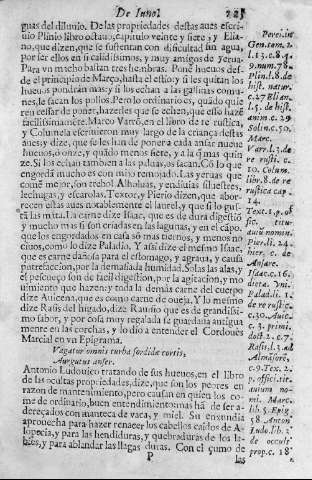 De Innol 225
guas del diluuio. De las propriedades destas aues escri-
uio Plinio libro octauo, capitulo veinte y siete, y Elia-
no, que dizen, que se sustentan con dificultad sin agua,
por ser ellos en si calidissimos, y muy amigos de yerua.
Para vn macho bastan tres hembras. Pone hueuos des-
de el principio de Março, hasta el estio; y si les quitan los
hueuos, ponen siempre; y si los echan a las gallinas comu-
nes, le sacan los pollos. Pero lo ordinario es, quãdo quie
ren cessar de poner, hazerles que se echen, que esso hazẽ
facilissimamẽte. Marco Varrõ, en el libro de re rustica,
y Columela escriuieron muy largo de la criança destas
aues; y dize, que se les han de poner a cada ansar nueue
hueuos, o onze, y quãdo menos siete, y a la q̃ mas quin
ze. Si los echan tambien a las pduas, os sacan. Cõ lo que
engordã mucho es con mijo remojado. Las yeruas que
comẽ mejor, son trebol Alholuas, y endiuias siluestres,
lechugas, y escarolas. Textor, y Pierio dizen, que abor-
recen estas aues notablemente el laurel, y que si lo gus-
tã las mata. La carne dize Isaac, que es de dura digestiõ
y mucho mas si son criadas en las lagunas, y en el cãpo.
que los engordados en casa sõ mas tiernos, y menos no
ciuos, como lo dize Paladio. Y assi dize el mesmo Isaac,
que es carne dañosa para el estomago, y agraua, y causa
putrefaccion, por la demasiada humidad. Solas las alas, y
el pescueço son de facil digestion, por la agitacion, y mo
uimiento que hazen: y toda la demàs carne del cuerpo
dize Auicena, que es como carne de oueja. Y lo mesmo
dize Rasis del higado, dize Rauisio que es de grandissi-
mo sabor, y por cosa muy regalada se guardaua antigua
mente en las corchas, y lo dio a entender el Cordoues
Marcial en vn Epigrama.
Vagatur omnis turba sordidæ cortis,
Argutus anser.
Antonio Ludouico tratando de sus hueuos, en el libro
de las ocultas propriedades, dize, que son los peores en
razon de mantenimiento, pero causan en quien los co-
me de ordinario, buen entendimiento: mas hã de ser a-
dereçados con manteca de vaca, y miel. Su enxundia
aprouecha para hazer renacer los cabellos caidos de A-
lopecia, y para las hendiduras, y quebraduras de los la-
bios, y para ablandar las llagas duras. Con el çumo de
P las
Perei. in
Gen. tom. 2.
l. 13. c. 8. q.
9. nm. 78.
Plin. l. 8. de
hist. natur.
c. 27 Elian.
l. 5. de hist.
anim. c. 29
Solin. c. 30
Marc.
Varr. l. 3. de
re rusti. c.
10. Colum.
libr. 8. de re
rustica cap.
14.
Text. l. 9. of
fic. titu.
auiũ nomin.
Pier. li. 24.
hier. c. de
Ansare.
Isaac. c. 16.
diæta. Vni.
Palad. li. 1.
de re rust. c.
30. Auic.
c. 3. primi.
doct. 2. c. 7.
Rasis, l. 3. ad
Almãsorẽ,
c. 9. Tex. 2.
p. offici. tit.
auium no-
mi. Marc.
lib. 3. Epig.
58. Anton.
Ludo. lib. 2.
de occult.
prop. c. 18